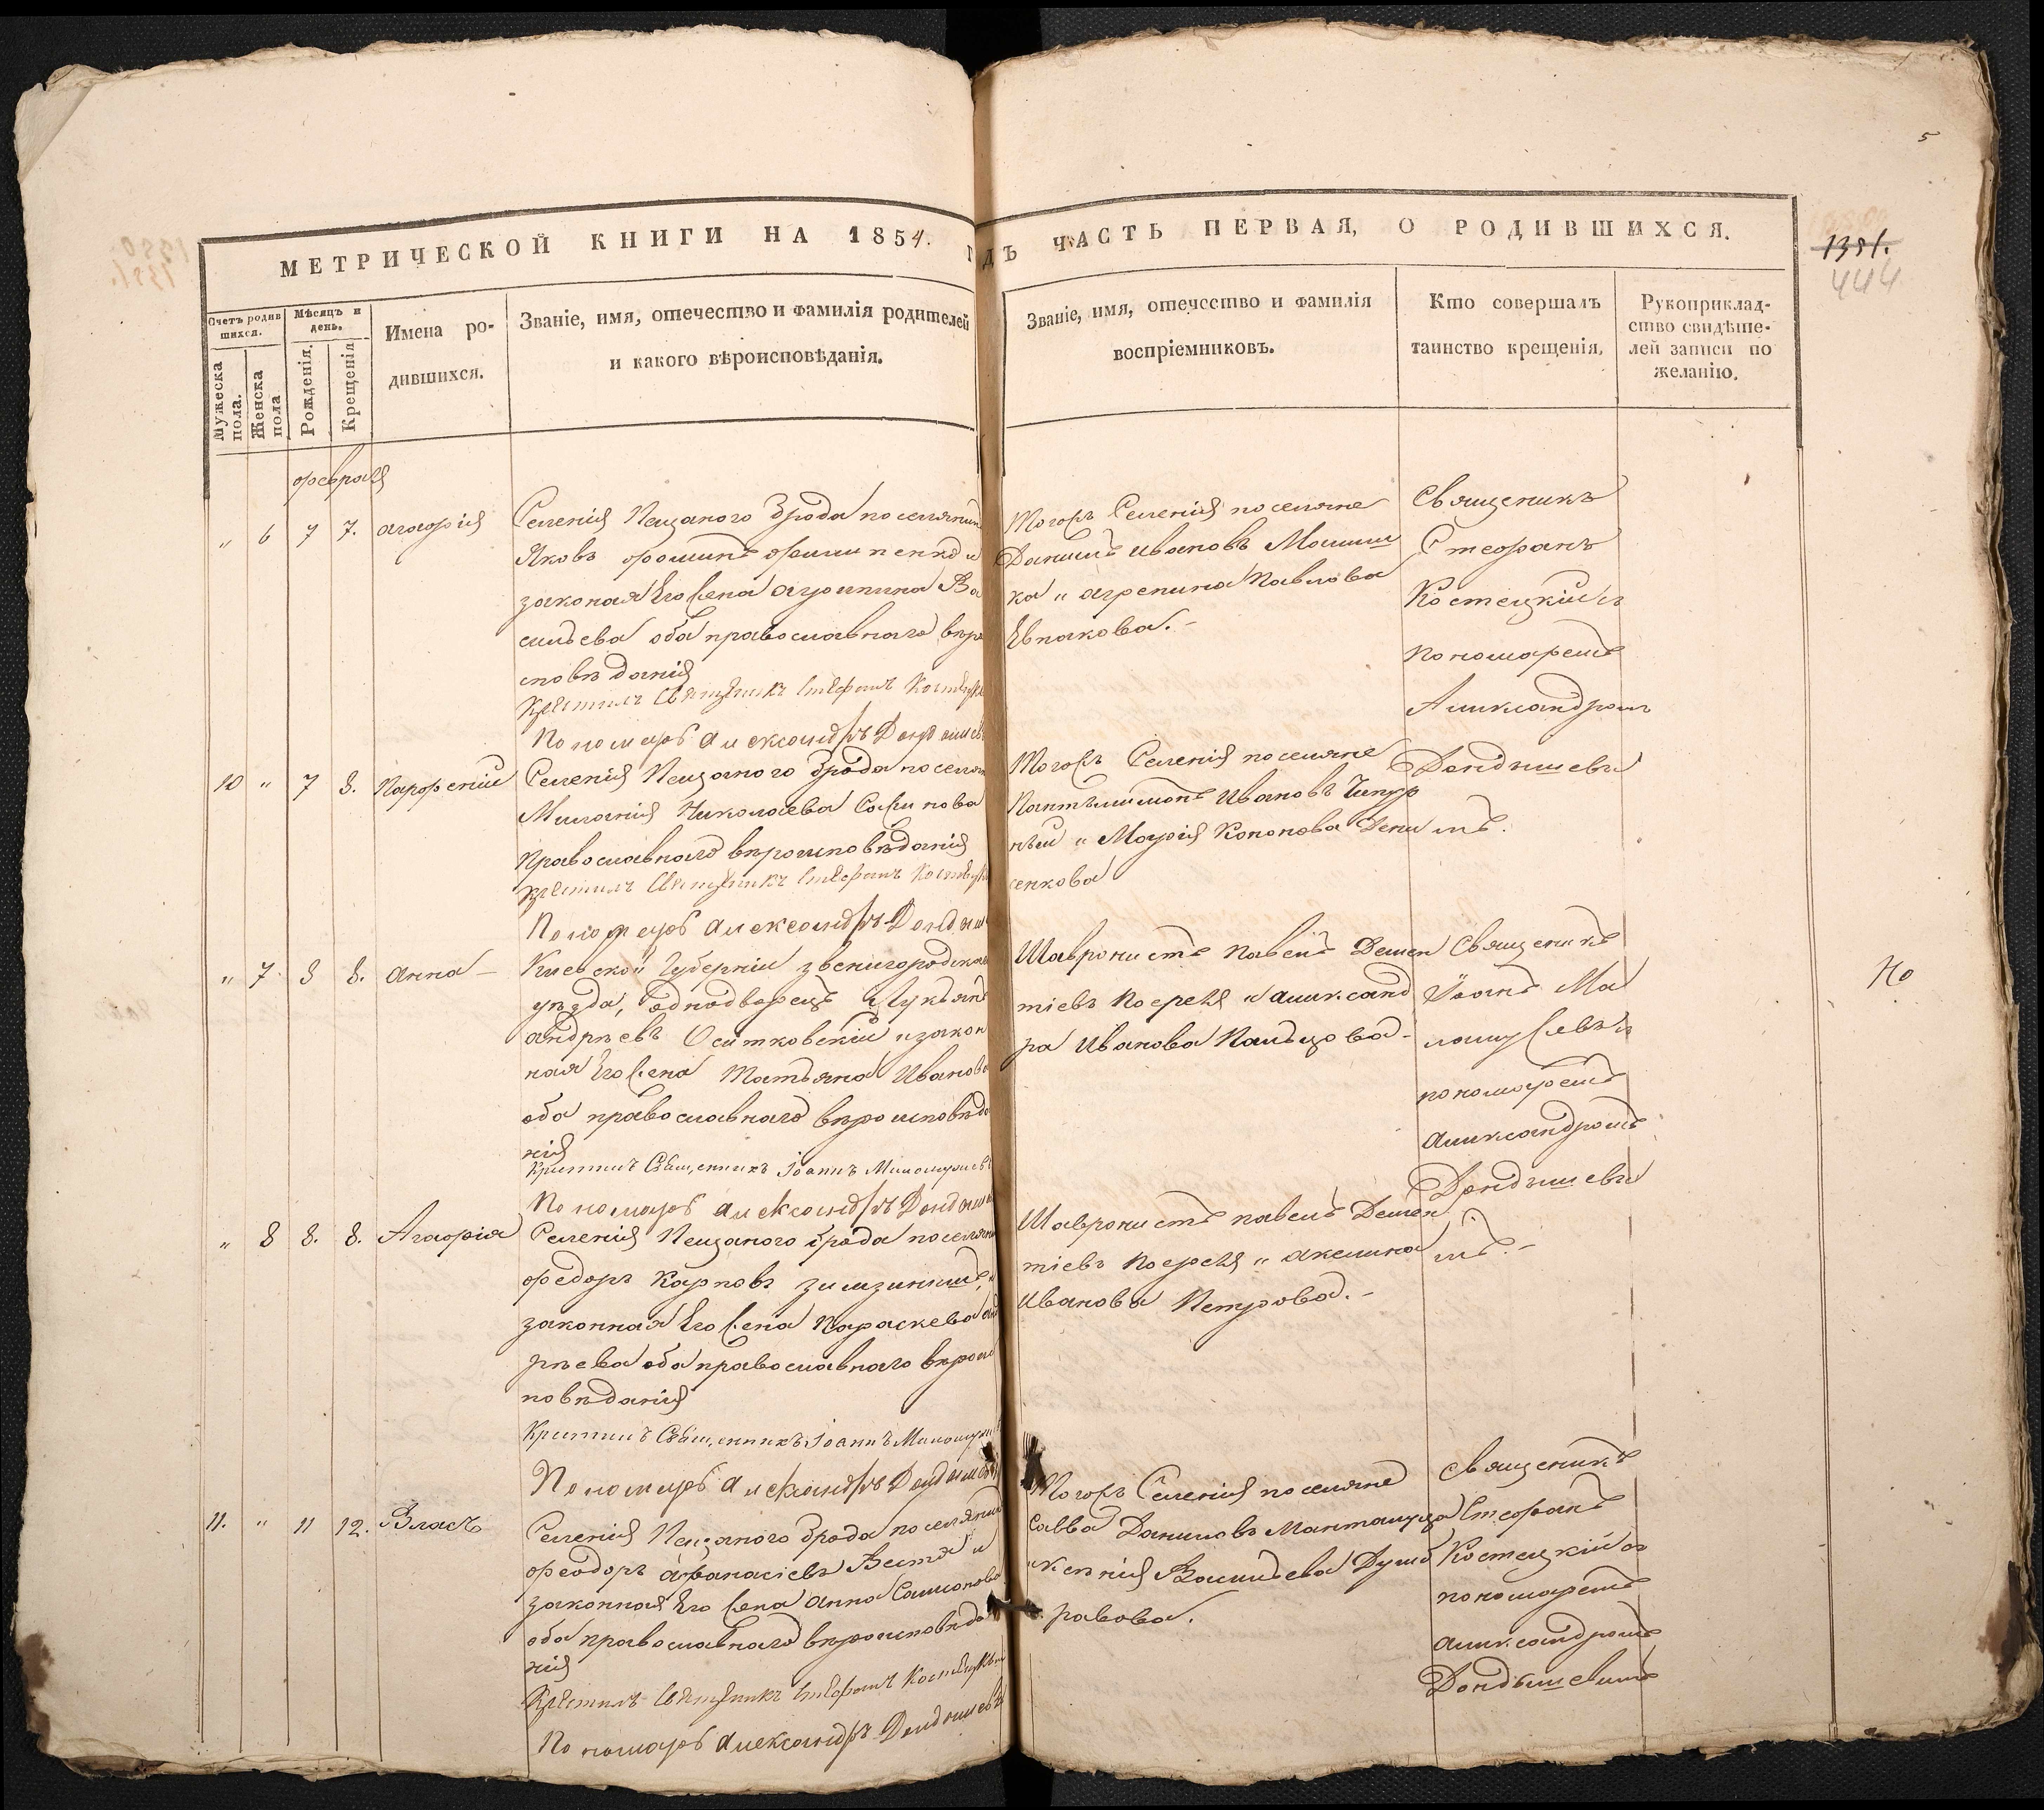 5
МЕТРИЧЕСКОЙ КНИГИ НА 1854.
ДЪ ЧАСТЬ ПЕРВАЯ, О РОДИВШИХСЯ.
1381.
444
Счетъ родив
шихся.
Мѣсяцъ и
день.
Мужеска
пола.
Женска
пола
Рожденія.
Крещенія
Имена ро-
дившихся.
Званіе, имя, отечество и фамилія родителей
и какого вѣроисповѣданія.
Званіе, имя, отечество и фамилія
воспріемниковъ.
Кто совершалъ
таинство крещенія.
Рукоприклад-
ство свидѣте-
лей записи по
желанію.
февраля
" 6 7 7. агафія
Селенія Песчаного Брода поселянин
Яковъ фоминъ и
законая Его жена агрипина Ва
сильева оба православнаго вѣро
исповѣданія
Крестилъ Священникъ Стефанъ Костецк
Пономарь Александръ Дондышев
Тогожъ Селенія поселяне
Данилъ Ивановъ
ка и агрепина Павлова
Священикъ
Стефанъ
Костецкій съ
пономаремъ
Александромъ
Дондышевы
мъ.
10 " 7 8. Парфеній
Селенія Песчаного Брода поселян
Миланія Николаева
Православнаго вѣроисповѣданія
Крестилъ Священникъ Стефанъ Костецк
Пономарь Александръ Дондыш
Тогожъ Селенія поселяне
Пантелимонъ Ивановъ
и Марія Кононова Дени
сенкова
" 7 8 8. анна
Кіевской Губерніи звенигородска
уѣзда, однодворецъ Лукьянъ
андрѣевъ Оситковскій и закон
ная Его жена Татьяна Иванова
оба православнаго вѣроисповѣда
нія
Крестилъ Священникъ Іоаннъ
Пономарь Александръ Дондыш
Павелъ Демен
тіевъ и Александ
ра Иванова Пальцова -
Священикъ
Іоанъ Ма
съ
пономаремъ
александромъ
Дондышевы
мъ. -
но
" 8 8. 8. Агафія
Селенія Песчаного Брода поселян
федоръ Карповъ
законная Его жена Параскева анд
рѣева оба православнаго вѣроис
повѣданія
Крестилъ Священникъ Іоаннъ
Пономарь Александръ Дондышев
павелъ Демен
тіевъ и акелина
Иванова Петрова. -
11. " 11 12. Власъ
Селенія Песчаного Брода поселянин
феодоръ афанасіевъ и
законная Его жена Анна Самсонова
оба православнаго вѣроисповѣда
нія
Крестилъ Священникъ Стефанъ Костецк
Пономарь Александръ Дондышевъ
Тогожъ Селенія поселяне
Савва Даниловъ
и Ксенія Васильева
Священикъ
Стефанъ
Костецкій съ
пономаремъ
александромъ
Дондышевимъ